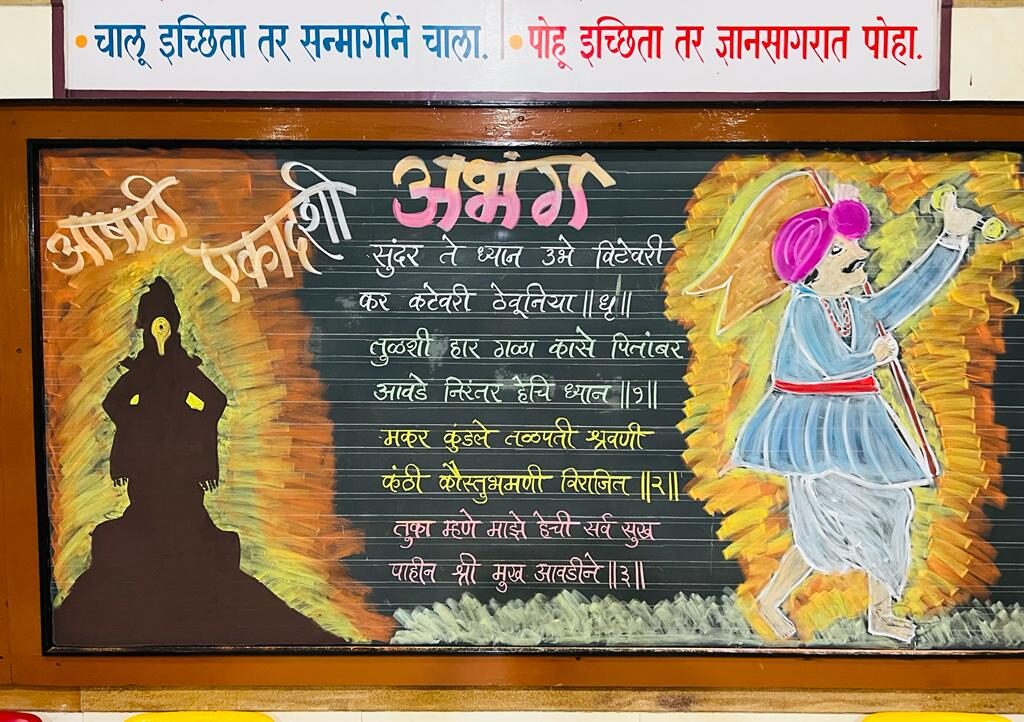 • चालू इच्छिता तर सन्मार्गाने चाला. • पोहू इच्छिता तर ज्ञानसागरात पोहा.
आषाढी एकादशी
अभंग
सुंदर ते ध्यान उभे विटेवरी
कर कटेवरी ठेवूनिया ||धृ||
तुळशी हार गळा कासे पितांबर
आवडे निरंतर हेचि ध्यान ||१||
मकर कुंडले तळपती श्रवणी
कंठी कौस्तुभमणी विराजित ||२||
तुका म्हणे माझे हेची सर्व सुख
पाहीन श्री मुख आवडीने ||३||